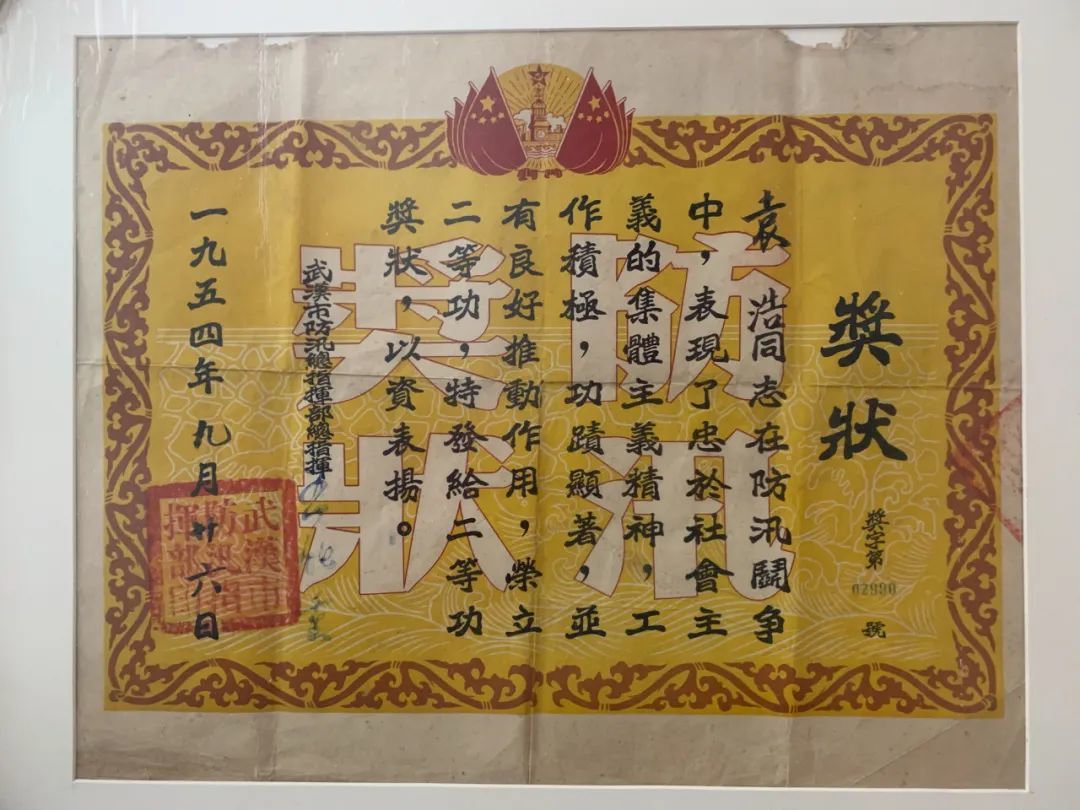 獎狀
獎字第02990號
袁浩同志在防汛鬭争
中，表現了忠於社會主
義的集體主義精神，工
作積極，功蹟顯著，並
有良好推動作用，榮立
二等功，特發給二等功
獎狀，以資表揚。
武漢市防汛總指揮部總指揮
一九五四年九月廿六日
防汛
獎狀
武漢市
防汛總指
揮部